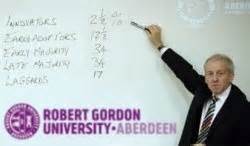 INNOVATORS 2½
EARLY ADOPTORS 13½
EARLY MAJORITY 34
LATE MAJORITY 34
LAGGARDS 17
ROBERT GORDON
UNIVERSITY·ABERDEEN